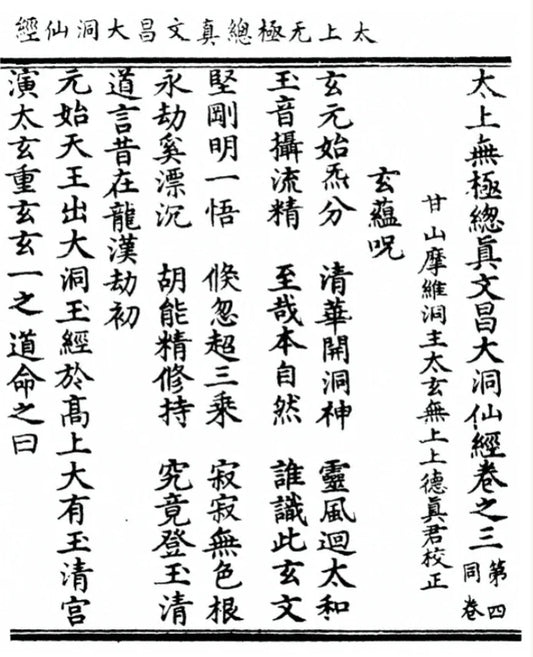 太上无極總真文昌大洞仙經
太上無極總真文昌大洞仙經卷之三 第四同卷
甘山摩維洞主太玄無上上德真君校正
玄蘊呪
玄元始炁分 清華開洞神 靈風迴太和
玉音攝流精 至哉本自然 誰識此玄文
堅剛明一悟 倏忽超三乘 寂寂無色根
永劫奚漂沉 胡能精修持 究竟登玉清
道言昔在龍漢劫初
元始天王出大洞玉經於高上大有玉清宮
演太玄重玄玄一之 道命之曰